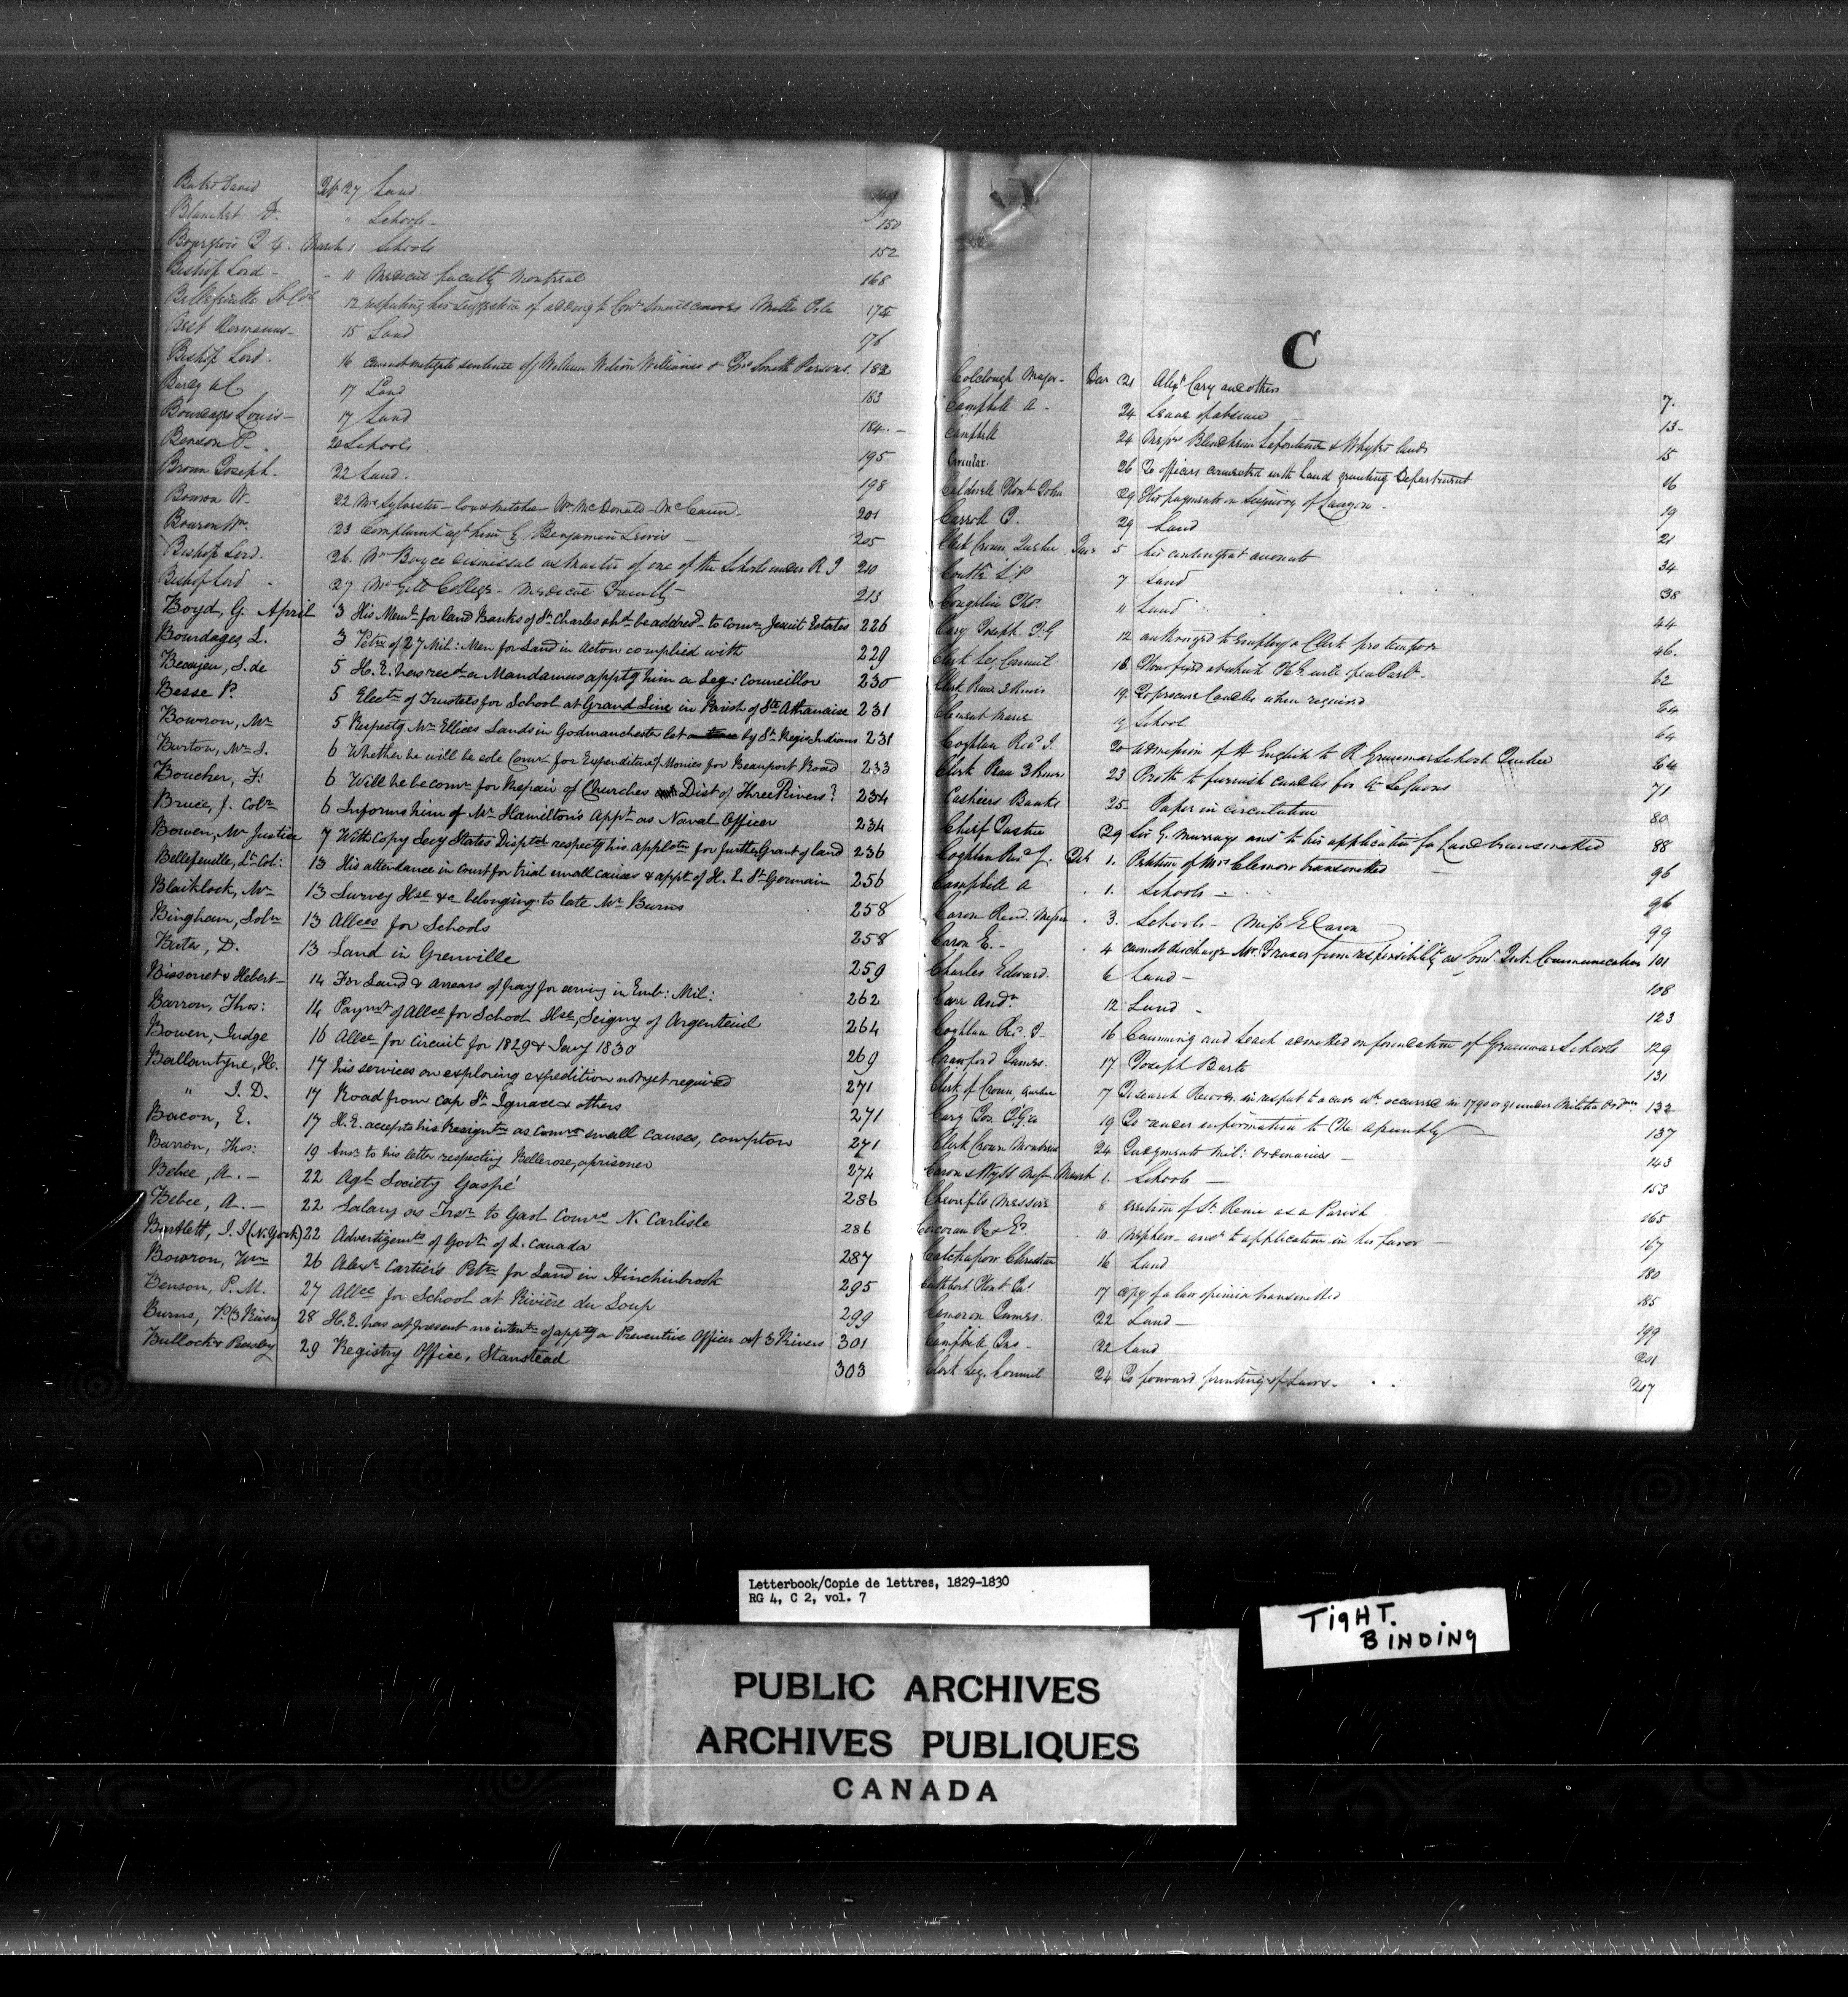 Bates David Feb 27 Land. 149
Blanchet D. " Schools - 150
Bourgeois March 1 Schools 152
Bishop Lord - - 11 Medical faculty Montreal 168
Bellefeuille Lt Col 12 respecting his suggestion of adding to Comrs small causes 174
Best Hermanus - 15 Land 176
Bishop Lord. 16 cannot mitigate sentence of William Wilson Williams & Smith Parsons. 182
17 Land 183
Bourdages Louis - 17 Land 184. -
Benson P. 20 Schools 195
Brown Joseph. 22 Land. 198
Bowron W. 22 Mr Sylvester - Wm McDonald - McCann. 201
Bowron Wm 23 Complaint agt him by Benjamin Lewis - 205
Bishop Lord. 26. Mr Boyce dismissal as Master of one of the Schools under R I 210
Bishop Lord - 27 McGill College - Medical Faculty - 213
Boyd, G. April 3 His Meml for land Banks of St Charles shd be addresd to Comrs Jesuit Estates 226
Bourdages, L. 3 Petn of 27 Mil: Men for Land in Acton complied with 229
Beaujeu, S. de 5 H. E. has recd a Mandamus apptg him a Leg: Councillor 230
Besse P. 5 Electn of Trustees for School at Grand Line in Parish of Ste Athanaise 231
Bowron, Mr 5 Respectg Mr Ellices Lands in Godmanchester let by St Regis Indians 231
Burton, Mr J. 6 Whether he will be sole Comr for Expenditure of Monies for Beauport Road 233
Boucher, F: 6 Will he be comr for Repair of Churches Dist of Three Rivers? 234
Bruce, J. Coln 6 Informs him of Mr Hamilton's Appt as Naval Officer 234
Bowen, Mr Justice 7 With Copy Secy States Disptch respectg his applctn for further Grant of land 236
Bellefeuille, Lt Col: 13 His attendance in court for trial small causes & appt of H. L. St Germain 256
Blaiklock, Mr 13 Survey Hse &c belonging to late Mr Burns 258
Bingham, Soln 13 Allces for Schools 258
Bates, D. 13 Land in Grenville 259
Bissonet & Hebert 14 For Land & arrears of pay for serving in Emb: Mil: 262
Barron, Thos: 14 Paymt of Allce for School Hse, Seigny of Argenteuil 264
Bowen, Judge 16 Allce for Circuit for 1829 & Jany 1830 269
Ballantyne, H. 17 his services on exploring expedition not yet required 271
" J. D. 17 Road from Cap St Ignace & others 271
Bacon, E. 17 H. E. accepts his Resigntn as Comr small causes, Compton 271
Barron, Thos: 19 Ansr to his letter respecting Bellerose, a prisoner 274
Bebee, A. - 22 Agl Society Gaspé 286
Bebee, A. - 22 Salary as Tresr to Gaol Comrs N. Carlisle 286
Bartlett, J. J (N. York) 22 Advertisemts of Govt of L. Canada 287
Bowron, Wm 26 Alexr Cartier's Petn for Land in Hinchinbrook 295
Benson, P. M. 27 Allce for School at Rivière du Loup 299
Burns, P. (3 Rivers) 28 H. E. has at present no intentn of apptg a Preventive Officer at 3 Rivers 301
Bullock & Pensby 29 Registry Office, Stanstead 303
C
Colclough Major - Dec 21 Alexr Cary and others 7.
Campbell A - 24 Leave of absence 13 -
Campbell 24 Messrs Lafontaine & Whytes lands 15
Circular. 26 To officers connected with Land granting Department 16
Caldwell Honble John 29. payments on Seigniory of Lauzon - 19
Carroll P. 29 Land 21
Clerk Crown Quebec Jan 5 his contingent accounts 34
Coutts 7 Land 38
Coughlin Thos. 11 Land 44
Cary Joseph I. G 12 authorized to employ a Clerk pro tempore 46.
Clerk Leg Council 18. Hour fixed at which H E will open Parlt. 62
Clerk Peace 3 Rivers 19. To procure Candles when required 64
Clement 19 School 64
Coghlan Revd J. 20 admission of English to R Grammar School Quebec 64
Clerk Peace 3 Rivers 23 Proth to furnish candles for Qr Sessions 71
Cashiers Banks 25. Paper in circulation 80
Chief Justice 29 Sir G. Murrays ansr to his application for Land transmitted 88
Coghlan Revd J. Feb 1. Petition of Mrs Clemow transmitted 96
Campbell A . 1. Schools - 96
Caron Revd. . 3. Schools - Miss E Caron 99
Caron E. - . 4 cannot discharge Mr Fraser from responsibility as Comr Int. Communication 101
Charles Edward. 6 Land - 108
Carr Andw 12 Land - 123
Coghlan Revd J - 16 Cumming and Leach admitted on foundation of Grammar Schools 129
Crawford James. 17. Joseph Barto 131
Clerk of Crown, Quebec 7 To search Records in respect to a case wh. occurred in 1790 or 91 under Militia Ordces 132
Cary Jos. I G &c 19 To render information to the Assembly 137
Clerk Crown Montreal 24 Judgments Mil: Ordinances - 143
Caron & Wyss March 1. Schools - 153
Chevrefils Messire 8 erection of St Remi as a Parish 165
Corcoran 10. Mr Phelan - ansr to application in his favor - 167
Christian 16 Land 180
Cuthbert Honble Js 17 copy of a law opinion transmitted 185
Cameron James. 22 Land - 199
Campbell Jas - 22 Land 201
Clerk Leg. Council 24 To forward printing of Laws - 207
Letterbook/Copie de lettres, 1829-1830
RG 4, C 2, vol. 7
TIGHT.
BINDING
PUBLIC ARCHIVES
ARCHIVES PUBLIQUES
CANADA